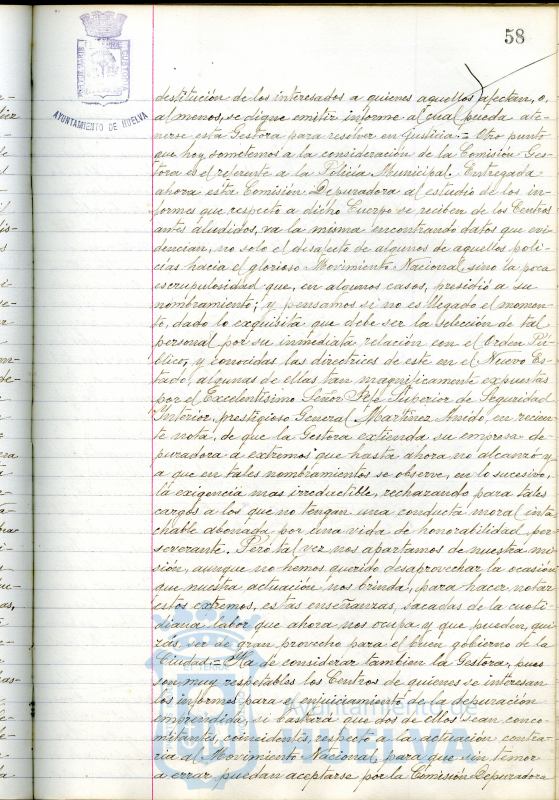 58
AYUNTAMIENTO DE HUELVA
destitución de los interesados a quienes aquellos afectan, o,
al menos, se digne emitir informe al cual pueda ate-
nerse esta Gestora para resolver en justicia.= Otro punto
que hoy sometemos a la consideración de la Comisión Ges-
tora es el referente a la Policía Municipal. Entregada
ahora esta Comisión Depuradora al estudio de los in-
formes que respecto a dicho Cuerpo se reciben de los Centros
antes aludidos, va la misma encontrando datos que evi-
dencian, no solo el desafecto de algunos de aquellos poli-
cías hacia el glorioso Movimiento Nacional, sino la poca
escrupulosidad que, en algunos casos, presidió a su
nombramiento; y pensamos si no es llegado el momen-
to, dado lo exquisita que debe ser la selección de tal
personal por su inmediata relación con el Orden Pú-
blico, y conocidas las directrices de este en el Nuevo Es-
tado, algunas de ellas tan magníficamente expuestas
por el Excelentísimo Señor Jefe Superior de Seguridad
Interior, prestigioso General Martínez Anido, en recien-
te nota, de que la Gestora extienda su empresa de-
puradora a extremos que hasta ahora no alcanzó y
a que en tales nombramientos se observe, en lo sucesivo,
la exigencia mas irreductible, rechazando para tales
cargos a los que no tengan una conducta moral inta-
chable abonada por una vida de honorabilidad per-
severante. Pero tal vez nos apartamos de nuestra mi-
sión, aunque no hemos querido desaprovechar la ocasión
que nuestra actuación nos brinda, para hacer notar
estos extremos, estas enseñanzas, sacadas de la cuoti-
diana labor que ahora nos ocupa y que pueden, qui-
zás, ser de gran provecho para el buen gobierno de la
Ciudad.= Ha de considerar también la Gestora, pues
son muy respetables los Centros de quienes se interesan
los informes para el enjuiciamiento de la depuración
emprendida, si bastará que dos de ellos sean conco-
mitantes, coincidentes, respecto a la actuación contra-
ria al Movimiento Nacional, para que sin temor
a errar puedan aceptarse por la Comisión Depuradora
Ayuntamiento de
HUELVA